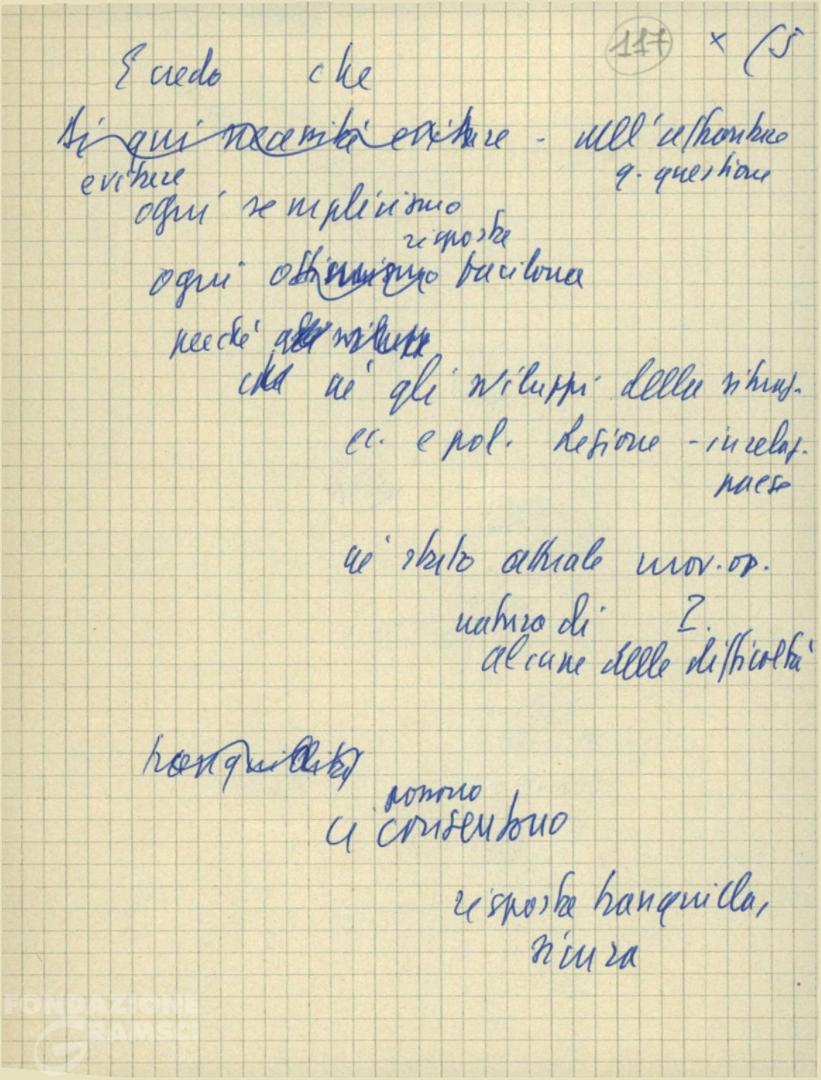 117 x (5
E credo che
Di qui necessità evitare - nell'affrontare
evitare q. questione
ogni semplicismo
risposta
ogni ottimismo facilona
perché sviluppi
né gli sviluppi della situaz.
ec. e pol. Regione - in relaz.
paese
né stato attuale mov. op.
natura di
alcune delle difficoltà
tranquillità
possono
ci consentono
risposta tranquilla,
sicura
FONDAZIONE
GRAMSCI